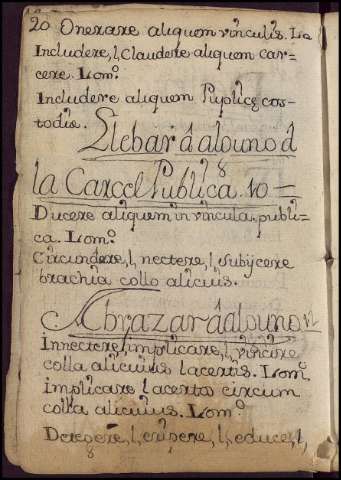 20 Onerare aliquem vinculis. Lo
Includere, l, Claudere aliquem car=
cere. Lom.º
Includere aliquem Puplice cos-
todie.
Llebar á alguno á
la Carcel Publica. 10 =
Ducere aliquem in vincula publi=
ca. Lom.º
Circundere, l, nectere, l, subijcere
brachia collo alicuius.
Abrazar á alguno 11
Innectere, implicare, l, vincire
colla alicuius lacertis. Lom.º
implicare lacertos circum
colla alicuius. Lom.º
Detegere, l, eripere, l, educe, l,